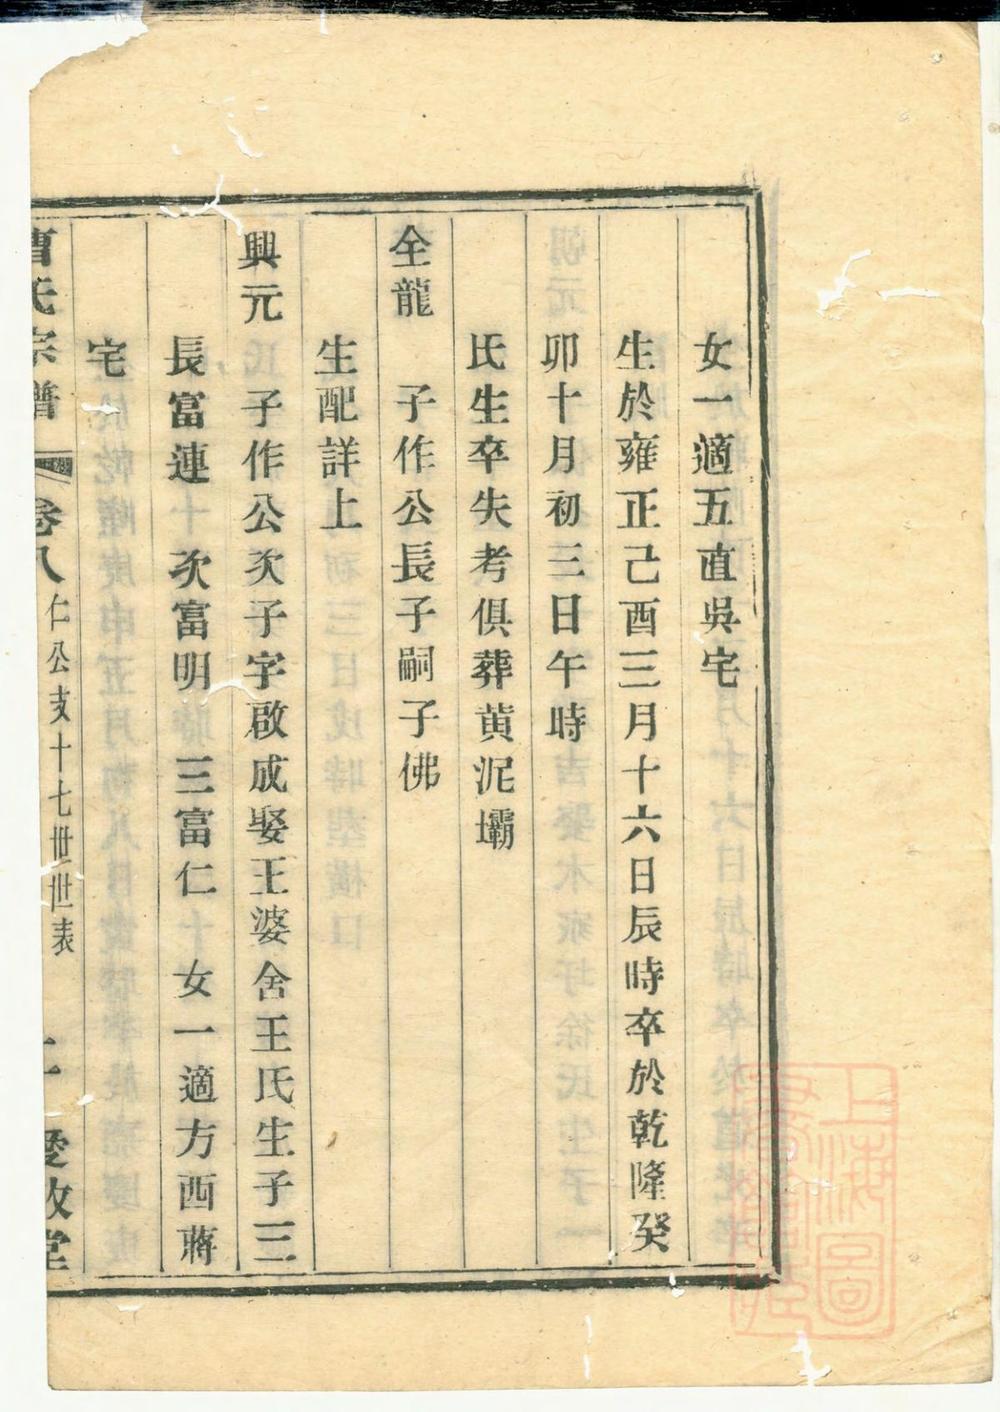 女一適五直吳宅
生於雍正己酉三月十六日辰時卒於乾隆癸
卯十月初三日午時
氏生卒失考俱葬黄泥壩
全龍　子作公長子嗣子佛
生配詳上
興元　子作公次子字啟成娶王婆舍王氏生子三
長富連　次富明　三富仁　女一適方西蔣
宅
曹氏宗譜　卷八　仁公支十七世世表　二　愛敬堂
上海圖